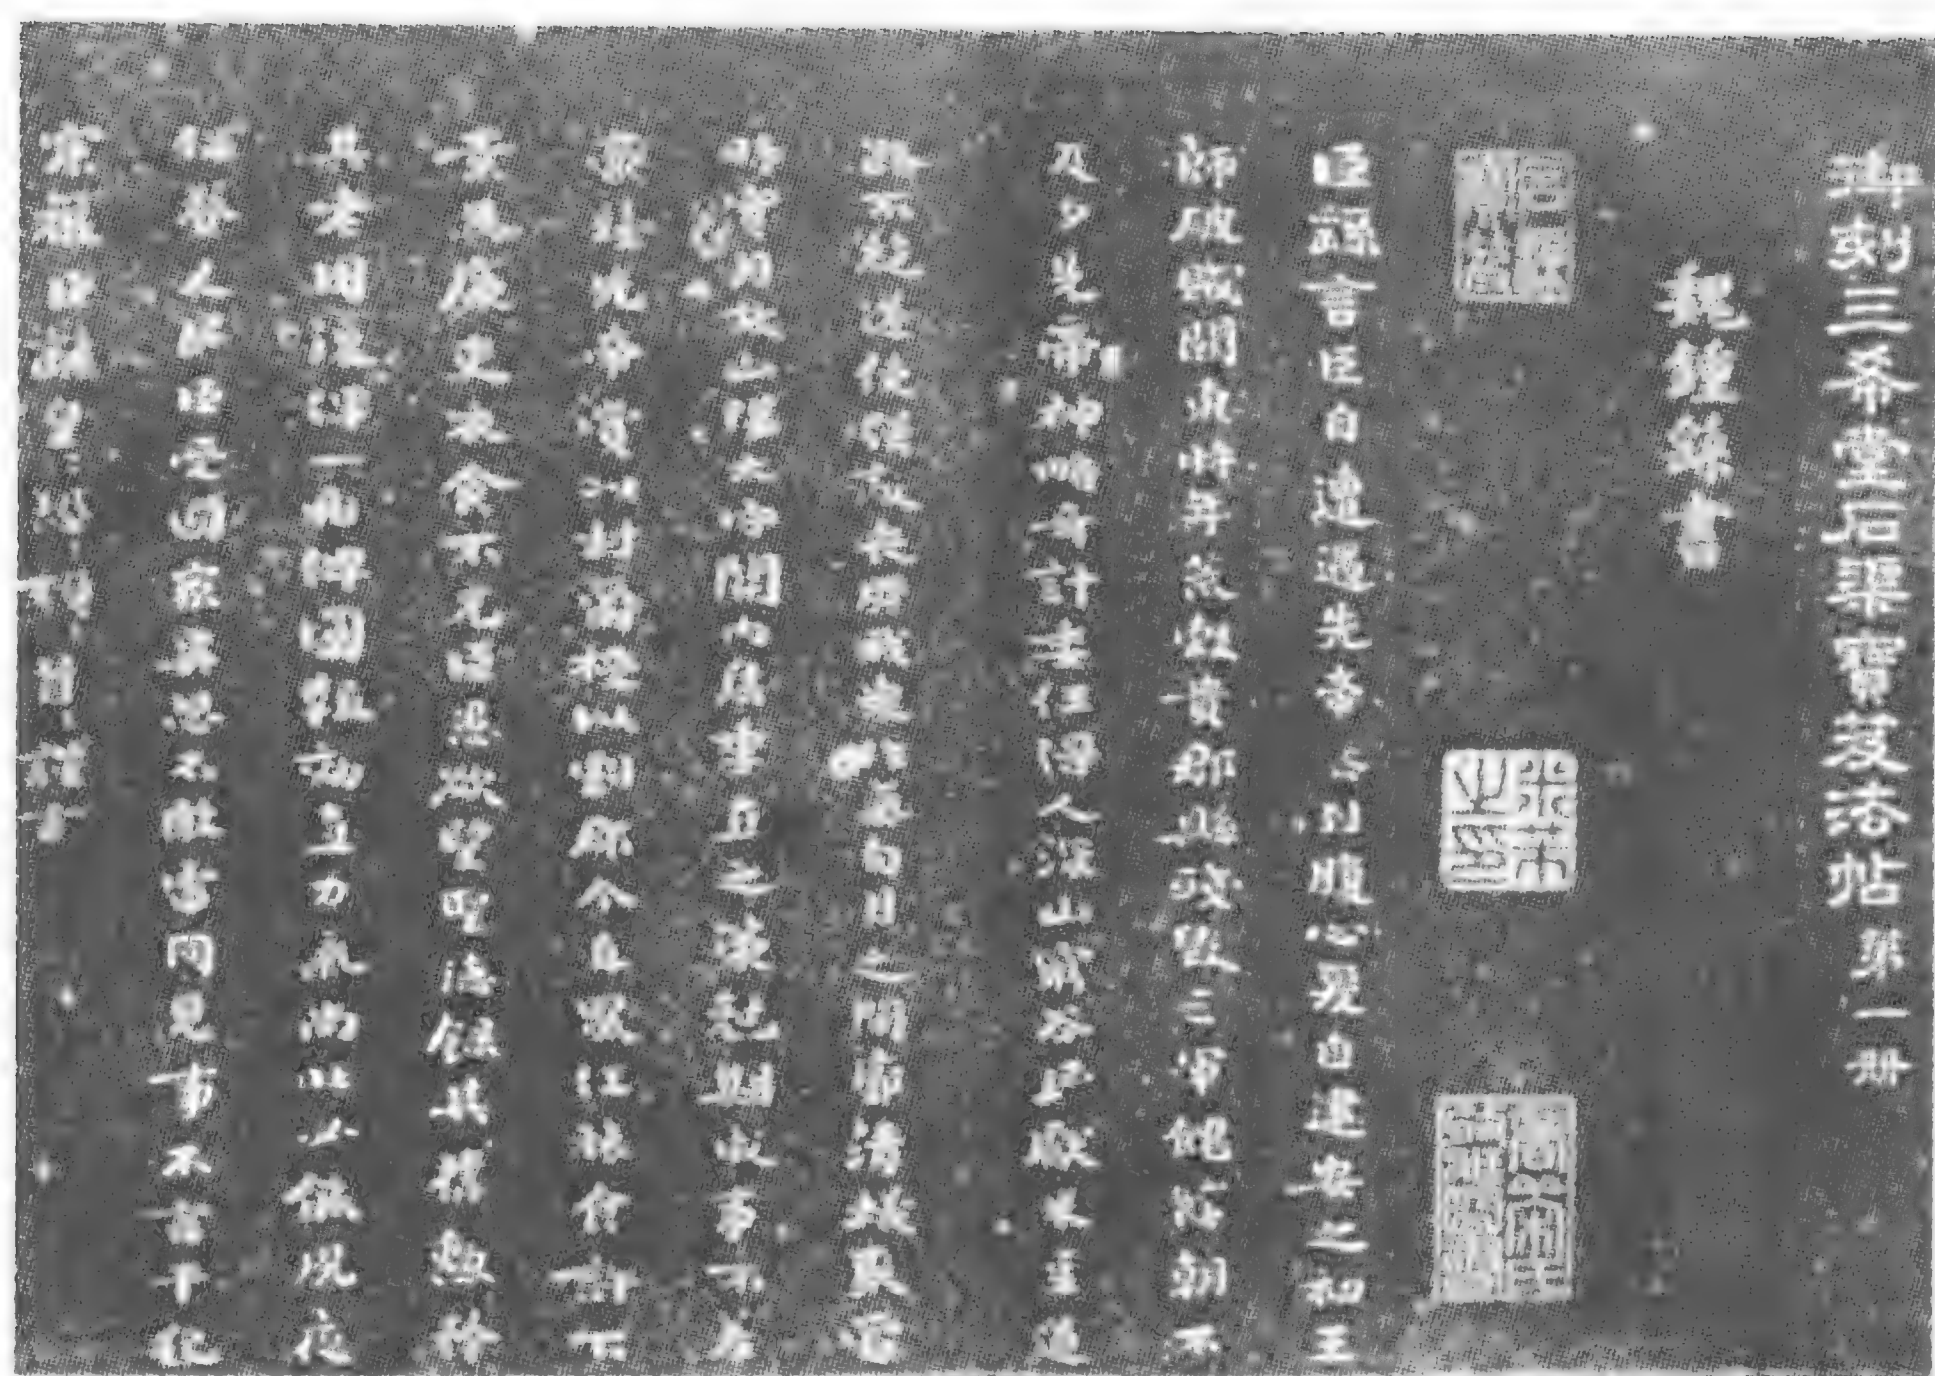 御刻三希堂石渠寶笈法帖第一冊
魏鍾繇書
臣繇言臣自遭遇先帝忝列腹心爰自建安之初王
師破賊關東時年荒穀貴郡縣殘毀三軍餽饟朝不
及夕先帝神略奇計委任得人深山窮谷民獻米豆道
路不絕遂使強敵喪膽我眾作氣旬月之間廓清蟻聚當
時實用故山陽太守關內侯季直之策剋期成事不差
豪髮先帝賞以封爵授以劇郡今直罷任旅食許下
素為廉吏衣食不充臣愚欲望聖德錄其舊勳矜
其老困復俾一州俾圖報效直力氣尚壯必能夙夜
保養人民臣受國家異恩不敢雷同見事不言干犯
宸嚴臣繇皇〻恐〻頓〻首〻謹言